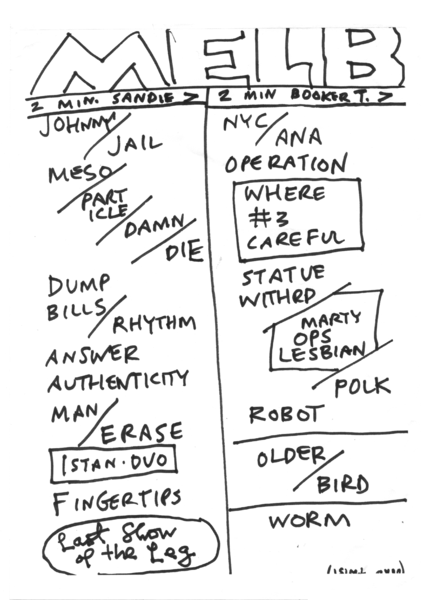 MELB
2 MIN. SANDIE >
JOHNNY/
JAIL
MESO/
PART
ICLE/
DAMN/
DIE
DUMP
BILLS/
RHYTHM
ANSWER
AUTHENTICITY
MAN/
ERASE
ISTAN·DUO
FINGERTIPS
Last Show
of the Leg
2 MIN BOOKER T. >
NYC/
ANA
OPERATION
WHERE
#3
CAREFUL
STATUE
WITHRD/
MARTY
OPS
LESBIAN/
POLK
ROBOT
OLDER/
BIRD
WORM